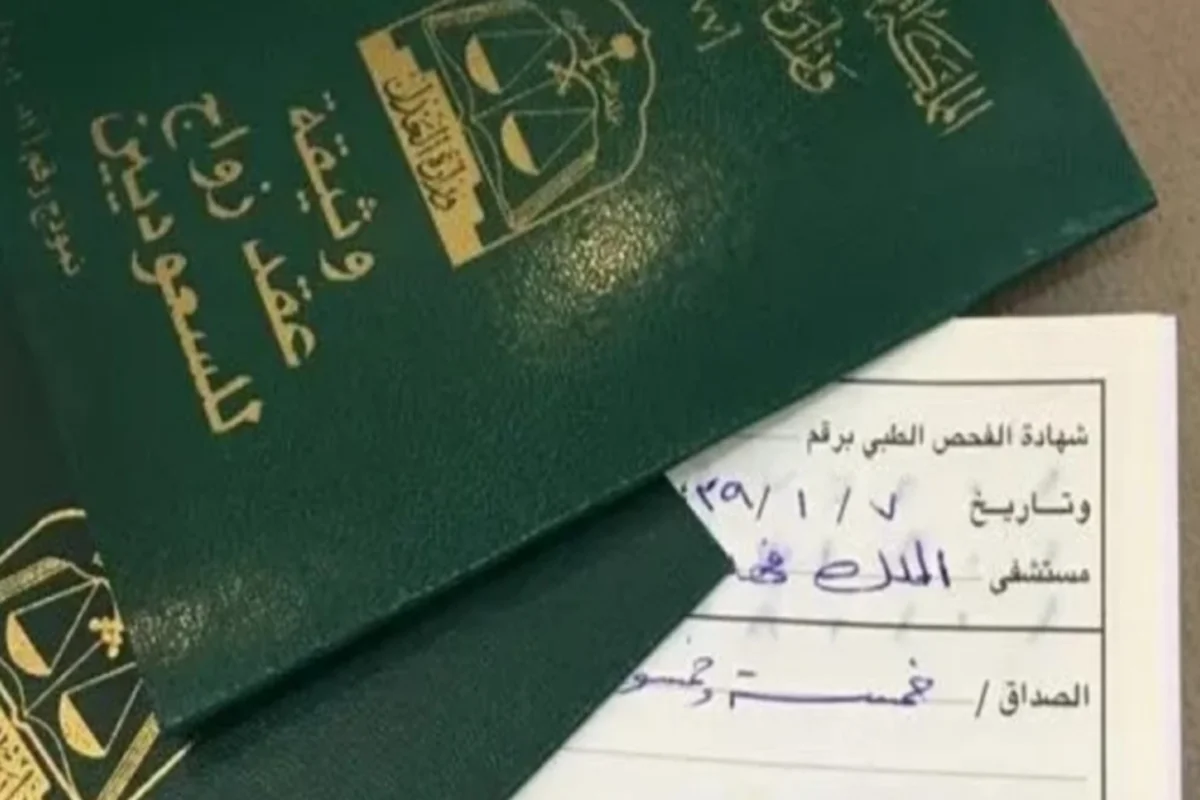 المملكة
وزارة
وزارة العدل
وثيقة
عقد زواج
للسعوديين
نموذج رقم
شهادة الفحص الطبي برقم
وتاريخ ٧ / ١ / ٣٩
مستشفى الملك
الصداق / خمسة